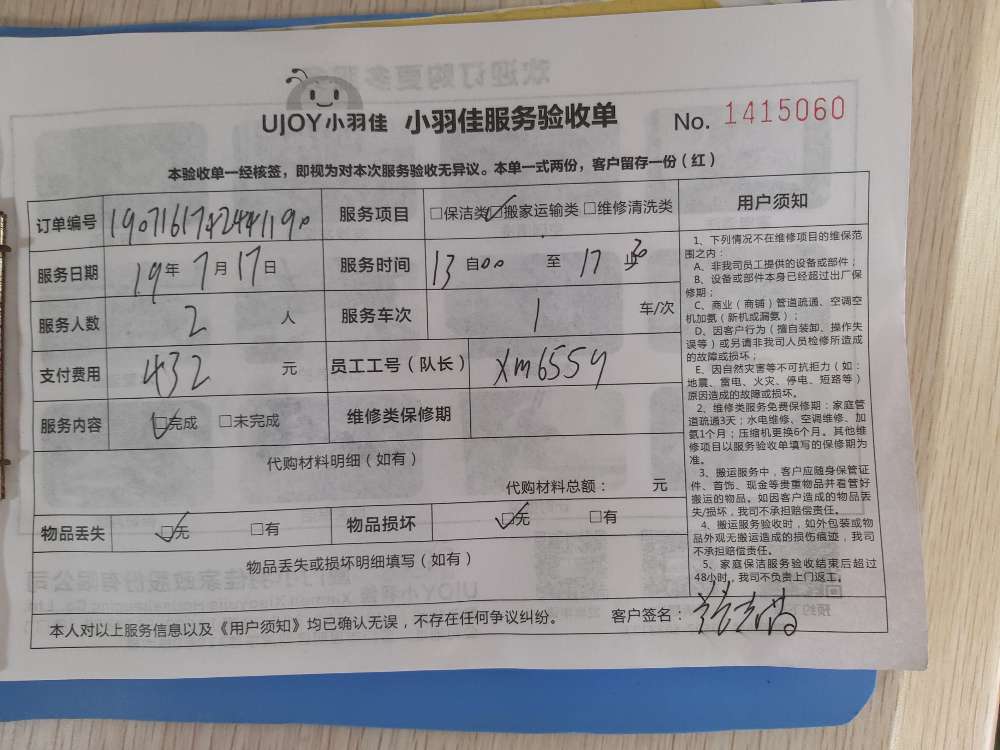 UJOY小羽佳 小羽佳服务验收单 No. 1415060
本验收单一经核签，即视为对本次服务验收无异议。本单一式两份，客户留存一份（红）
订单编号 服务项目 □保洁类 ☑搬家运输类 □维修清洗类
服务日期 19年7月17日 服务时间 13自00至17止30
服务人数 2人 服务车次 1 车/次
支付费用 432 元 员工工号（队长） Xm6559
服务内容 ☑完成 □未完成 维修类保修期
代购材料明细（如有）
代购材料总额： 元
物品丢失 ☑无 □有 物品损坏 ☑无 □有
物品丢失或损坏明细填写（如有）
本人对以上服务信息以及《用户须知》均已确认无误，不存在任何争议纠纷。 客户签名：
用户须知
1、下列情况不在维修项目的维保范
围之内：
A、非我司员工提供的设备或部件；
B、设备或部件本身已经超过出厂保
修期；
C、商业（商铺）管道疏通、空调空
机加氨（新机或漏氨）；
D、因客户行为（擅自装卸、操作失
误等）或另请非我司人员检修所造成
的故障或损坏；
E、因自然灾害等不可抗拒力（如：
地震、雷电、火灾、停电、短路等）
原因造成的故障或损坏。
2、维修类服务免费保修期：家庭管
道疏通3天；水电维修、空调维修、加
氨1个月；压缩机更换6个月。其他维
修项目以服务验收单填写的保修期为
准。
3、搬运服务中，客户应随身保管证
件、首饰、现金等贵重物品并看管好
搬运的物品。如因客户造成的物品丢
失/损坏，我司不承担赔偿责任。
4、搬运服务验收时，如外包装或物
品外观无搬运造成的损伤痕迹，我司
不承担赔偿责任。
5、家庭保洁服务验收结束后超过
48小时，我司不负责上门返工。